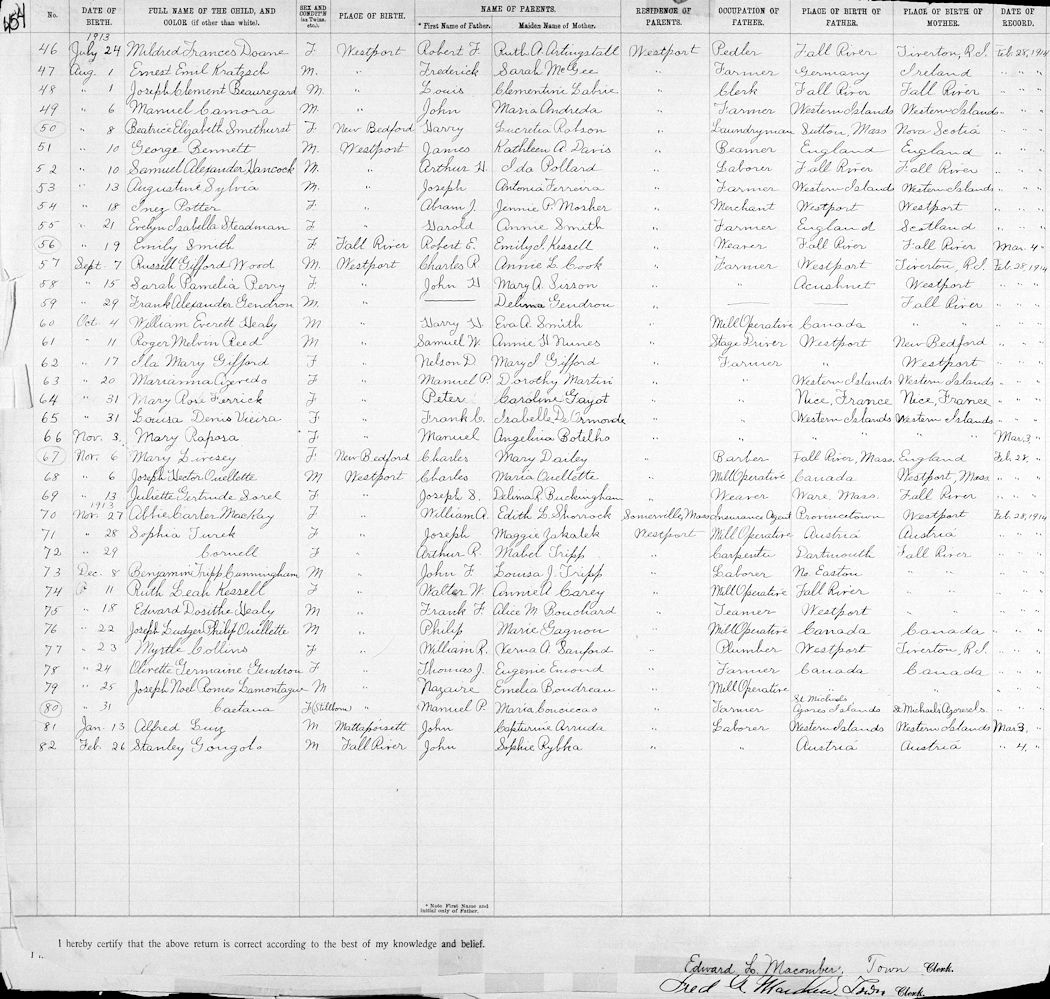 454
No. DATE OF BIRTH. FULL NAME OF THE CHILD, AND COLOR (if other than white). SEX AND CONDIT'N (as Twins, etc.) PLACE OF BIRTH. NAME OF PARENTS. * First Name of Father. Maiden Name of Mother. RESIDENCE OF PARENTS. OCCUPATION OF FATHER. PLACE OF BIRTH OF FATHER. PLACE OF BIRTH OF MOTHER. DATE OF RECORD.
1913
46 July 24 Mildred Frances Doane F Westport Robert F. Ruth A Artingstall Westport Pedler Fall River Tiverton, R.I. Feb 28, 1914
47 Aug. 1 Ernest Emil Kratzsch M. " Frederick Sarah McGee " Farmer Germany Ireland " " "
48 " 1 Joseph Clement Beauregard M " Louis Clementine Labrie " Clerk Fall River Fall River " " "
49 " 6 Manuel Camora M " John Maria Andreda " Farmer Western Islands Western Islands " " "
50 " 8 Beatrice Elizabeth Smethurst F. New Bedford Harry Lucretia Robson " Laundryman Sutton, Mass Nova Scotia " " "
51 " 10 George Bennett M. Westport James Kathleen A Davis " Beamer England England " " "
52 " 10 Samuel Alexander Hancock M. " Arthur H. Ida Pollard " Laborer Fall River Fall River " " "
53 " 13 Augustine Sylvia M. " Joseph Antonia Ferreira " Farmer Western Islands Western Islands " " "
54 " 18 Inez Potter F " Abram J. Jennie P. Mosher " Merchant Westport Westport " " "
55 " 21 Evelyn Isabella Steadman F " Harold Annie Smith " Farmer England Scotland " " "
56 " 19 Emily Smith F Fall River Robert E. Emily I. Kessell " Weaver Fall River Fall River Mar. 4 "
57 Sept. 7 Russell Gifford Wood M. Westport Charles R. Annie L. Cook " Farmer Westport Tiverton, R.I. Feb. 28, 1914
58 " 15 Sarah Pamelia Perry F " John H Mary A. Sisson " " Acushnet Westport " " "
59 " 29 Frank Alexander Gendron M. " — Delima Gendron " — — Fall River " " "
60 Oct. 4 William Everett Healy M " Harry H. Eva A. Smith " Mill Operative Canada " " " " "
61 " 11 Roger Melvin Reed M " Samuel W. Annie H Nunes " Stage Driver Westport New Bedford " " "
62 " 17 Ila Mary Gifford F " Nelson D. Mary J Gifford " Farmer " Westport " " "
63 " 20 Marianna Azevedo F " Manuel P. Dorothy Martin " " Western Islands Western Islands " " "
64 " 31 Mary Rose Ferrick F " Peter Caroline Gayot " " Nice, France Nice, France " " "
65 " 31 Louisa Denis Vieira F " Frank C. Isabelle De Ormonde " " Western Islands Western Islands " " "
66 Nov. 3. Mary Raposa F " Manuel Angelina Botelho " " " " Mar. 3 "
67 Nov. 6 Mary Livesey F New Bedford Charles Mary Dailey " Barber Fall River, Mass. England Feb. 28, "
68 " 6 Joseph Hector Ouellette M Westport Charles Maria Ouellette " Mill Operative Canada Westport, Mass. " " "
69 " 13 Juliette Gertrude Sorel F " Joseph S. Delima R Buckingham " Weaver Ware, Mass. Fall River " " "
1913
70 Nov. 27 Abbie Carter MacKay F " William A. Edith L. Shorrock Somerville, Mass Insurance Agent Provincetown Westport Feb. 28, 1914
71 " 28 Sophia Turek F " Joseph Maggie Zakalek Westport Mill Operative Austria Austria " " "
72 " 29 Cornell F " Arthur R. Mabel Tripp " Carpenter Dartmouth Fall River " " "
73 Dec. 8 Benjamin Tripp Cunningham M " John F. Louisa J. Tripp " Laborer No. Easton " " " "
74 " 11 Ruth Leah Kessell F " Walter W. Annie A. Carey " Mill Operative Fall River " " " "
75 " 18 Edward Dosithe Healy M " Frank F. Alice M Bouchard " Teamer Westport " " " "
76 " 22 Joseph Ludger Philip Ouellette M " Philip Marie Gagnon " Mill Operative Canada Canada " " "
77 " 23 Myrtle Collins F " William R. Verna A. Sanford " Plumber Westport Tiverton, R.I. " " "
78 " 24 Olivette Germaine Gendron F " Thomas J. Eugenie Emond " Farmer Canada Canada " " "
79 " 25 Joseph Noel Romeo Lamontagne M " Nazaire Emelia Boudreau " Mill Operative " " " " "
80 " 31 Caetana F (Stillborn) " Manuel P. Maria " Farmer St. Michaels Azores Islands St Michaels Azores Is. " " "
81 Jan. 13 Alfred Luiz M Mattapoisett John Capturine Arruda " Laborer Western Islands Western Islands Mar. 3, "
82 Feb. 26 Stanley Gongolo M Fall River John Sophie Rybka " " Austria Austria " 4, "
* Note First Name and initial only of Father.
I hereby certify that the above return is correct according to the best of my knowledge and belief.
Edward L. Macomber, Town Clerk.
Fred A. Town Clerk.